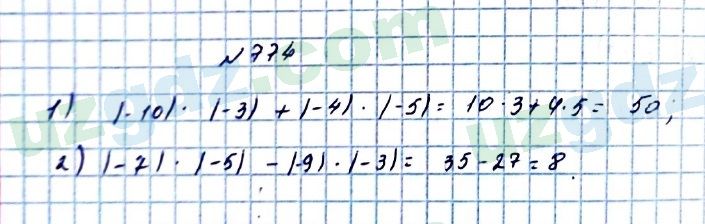 №774
1) |-10| · |-3| + |-4| · |-5| = 10 · 3 + 4 · 5 = 50;
2) |-7| · |-5| - |-9| · |-3| = 35 - 27 = 8.
uzgdz.com
uzgdz